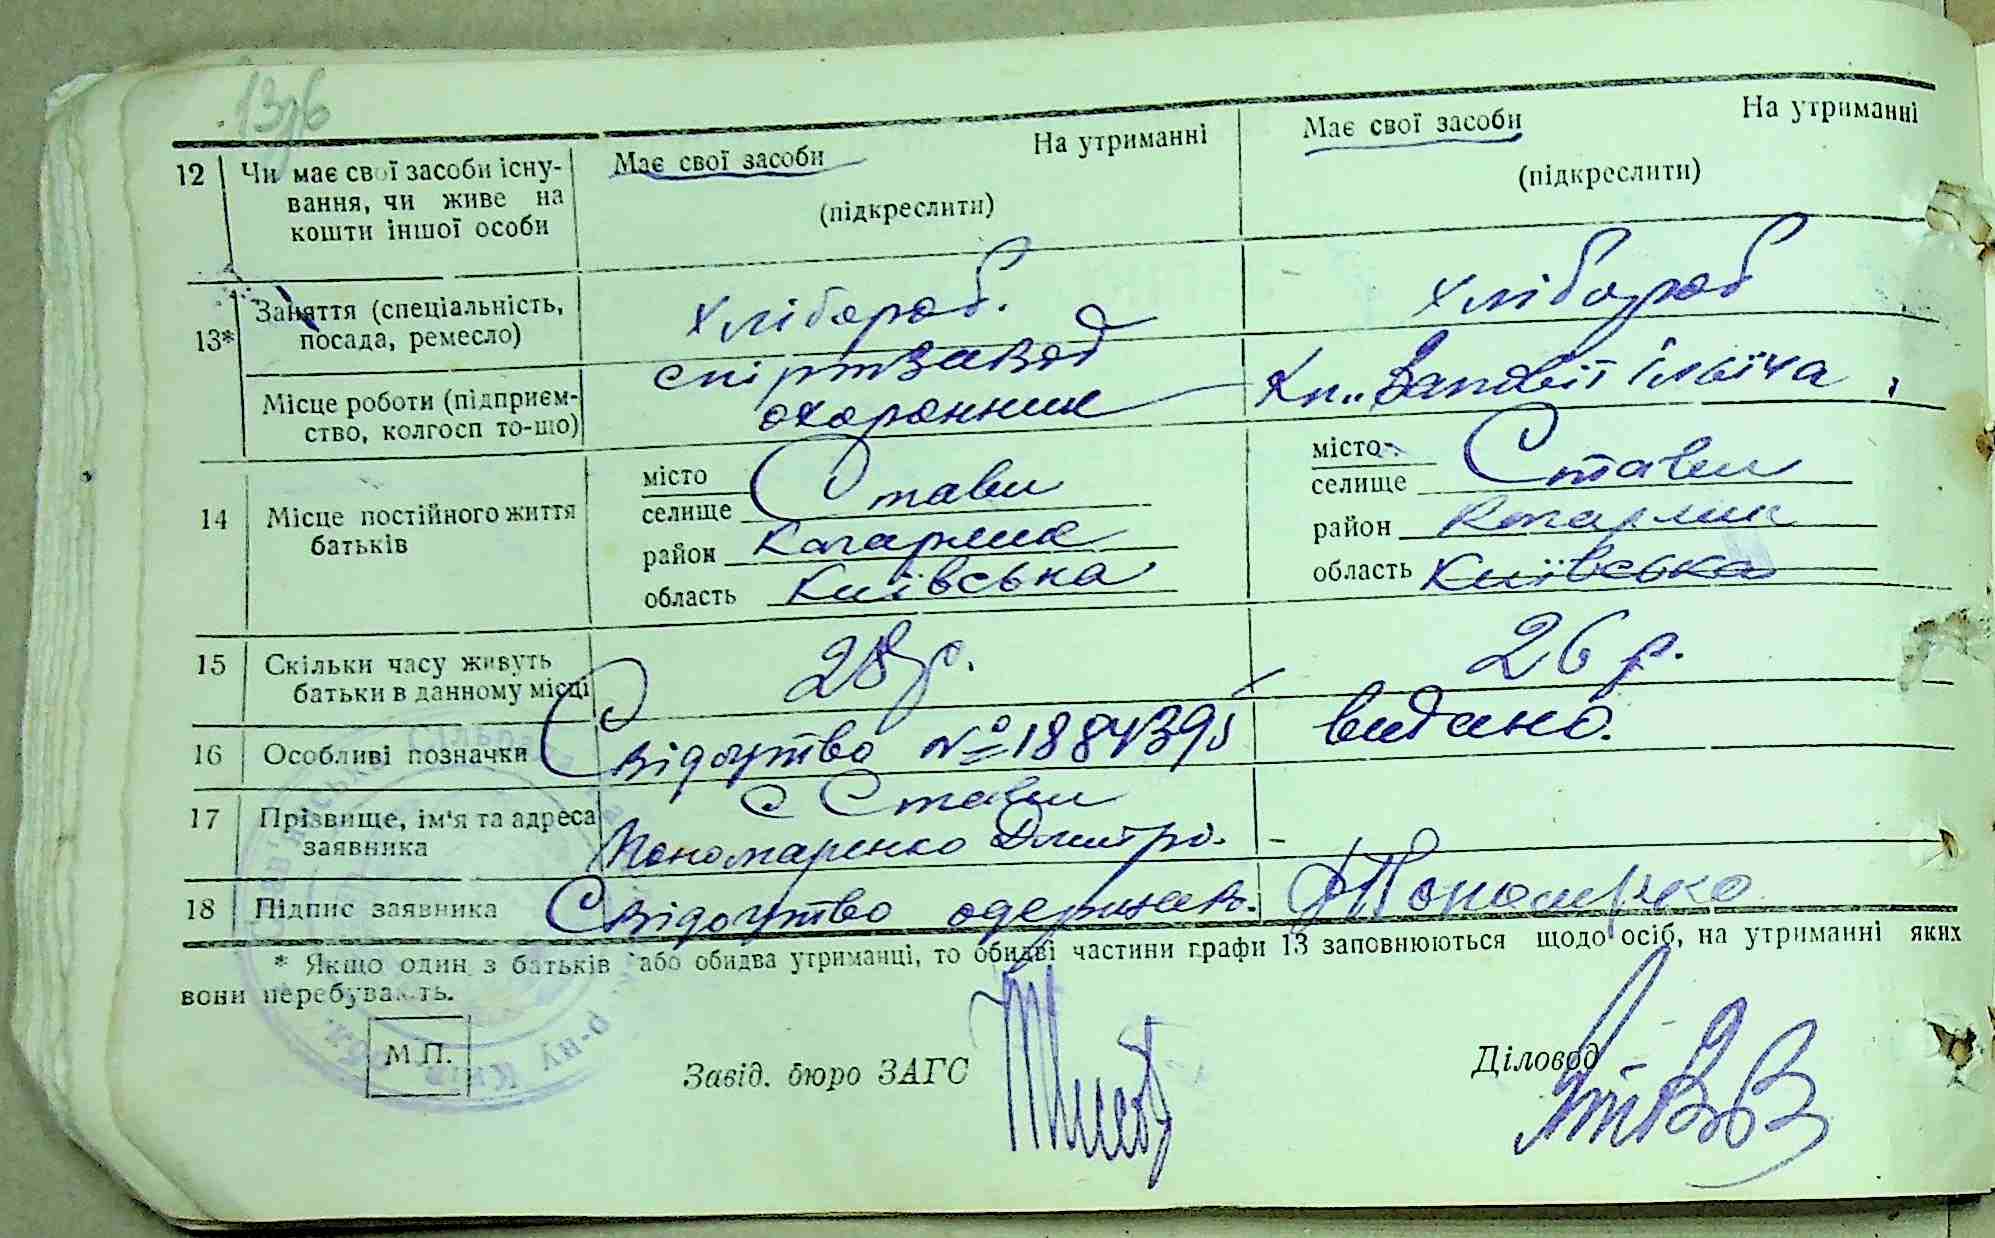 12 Чи має свої засоби існу- Має свої засоби На утриманні Має свої засоби На утриманні
вання, чи живе на (підкреслити) (підкреслити)
кошти іншої особи
13* Заняття (спеціальність, хлібороб. хлібороб
посада, ремесло)
Місце роботи (підприєм- спіртзавод Кп.. Заповіт Ілліча
ство, колгосп то-що) охоронник
14 Місце постійного життя місто Стави місто Стави
батьків селище селище
район Кагарлик район Кагарлик
область Київська область Київська
15 Скільки часу живуть 28 р. 26 р.
батьки в данному місці
16 Особливі позначки Свідоцтво № 1884395 видано.
17 Прізвище, ім'я та адреса с Стави
заявника Пономаренко Дмитро.
18 Підпис заявника Свідоцтво одержав.
* Якщо один з батьків або обидва утриманці, то обидві частини графи 13 заповнюються щодо осіб, на утриманні яких
вони перебувають.
М.П. Завід. бюро ЗАГС Діловод